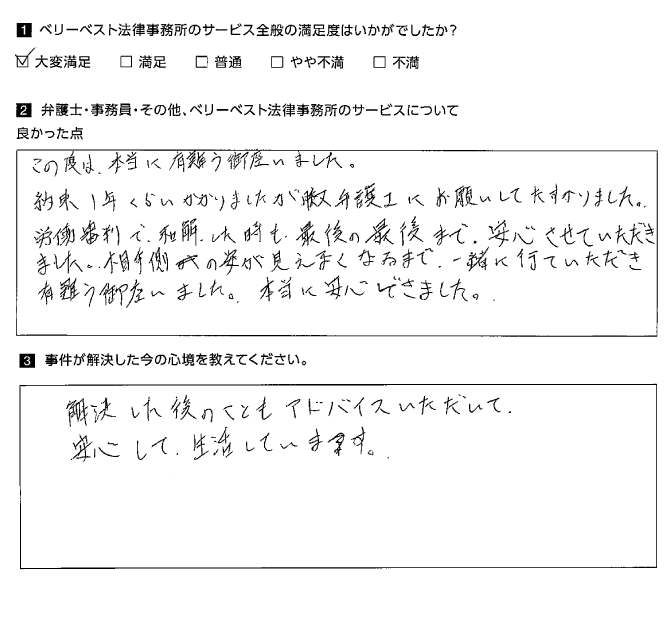 1 ベリーベスト法律事務所のサービス全般の満足度はいかがでしたか?
☑大変満足 □満足 □普通 □やや不満 □不満
2 弁護士・事務員・その他、ベリーベスト法律事務所のサービスについて
良かった点
この度は、本当に有難う御座いました。
約束1年くらいかかりましたが 弁護士にお願いしてたすかりました。
労働審判で、和解した時も、最後の最後まで、安心させていただき
ました。相手側の姿が見えまくなるまで、一緒に行ていただき
有難う御座いました。本当に安心できました。
3 事件が解決した今の心境を教えてください。
解決した後のことも アドバイスいただいて、
安心して、生活しています。